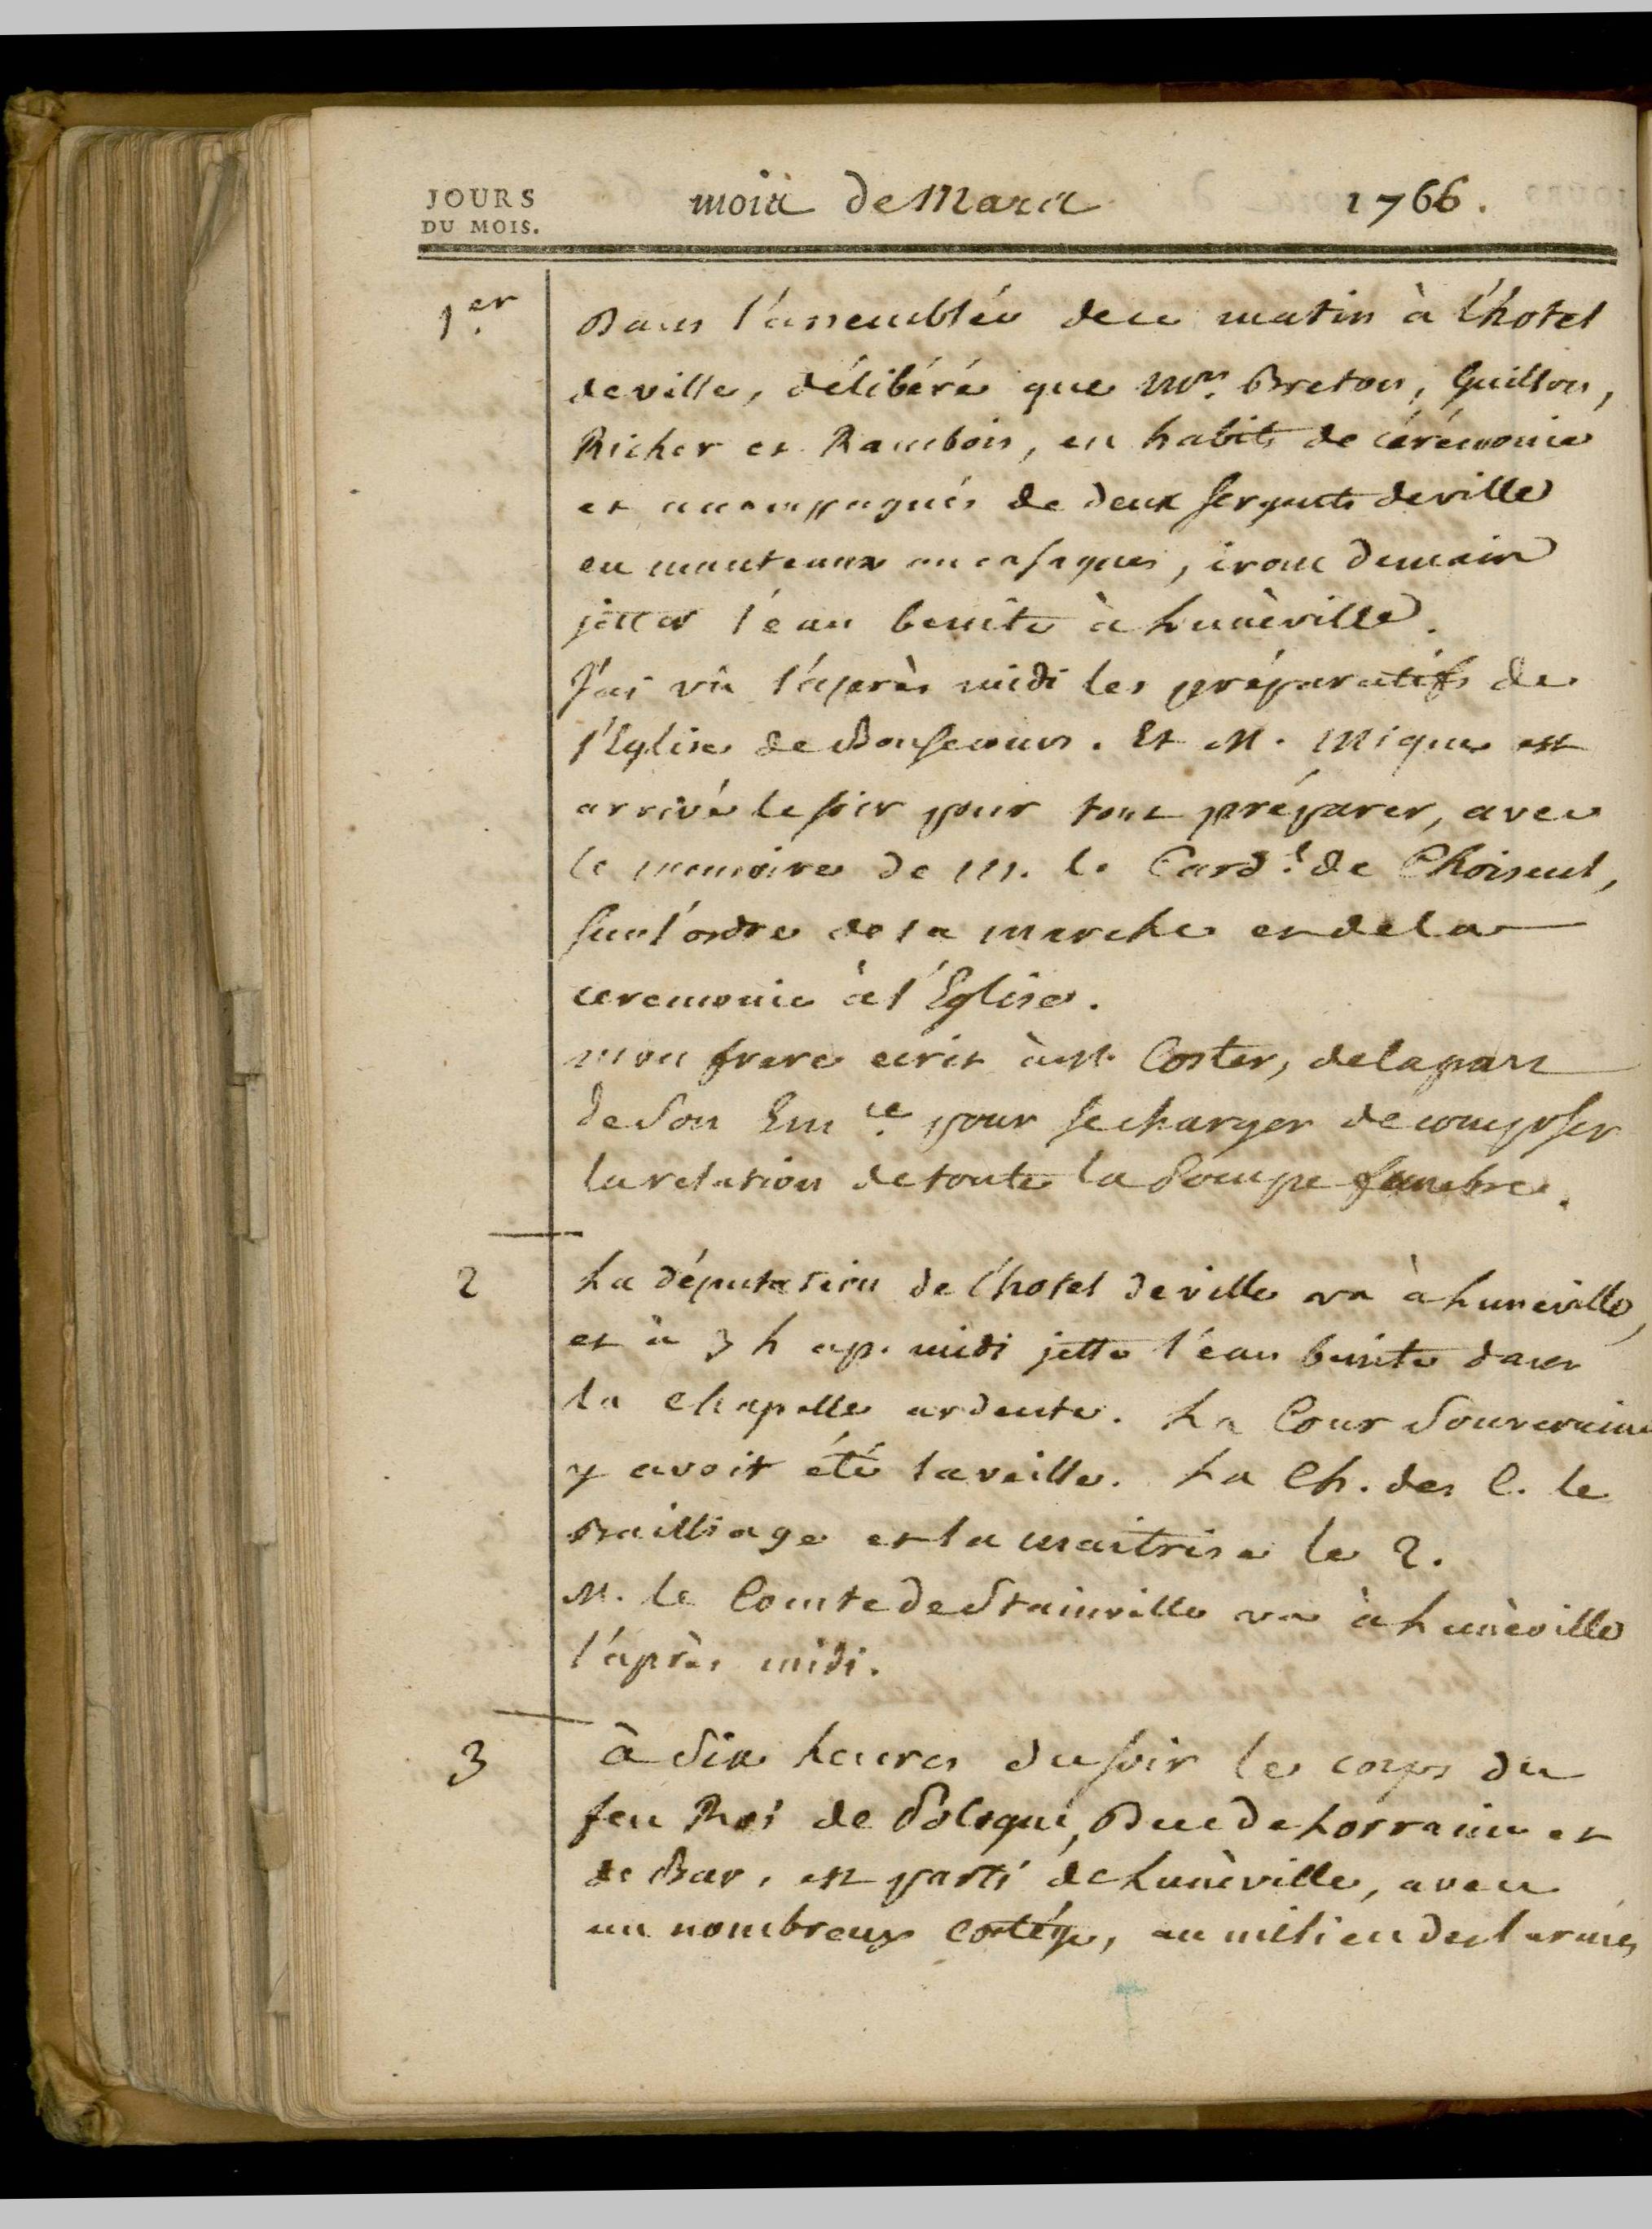 JOURS
DU MOIS.
mois de Mars 1766.
1er. Dans l'assemblée de ce matin à l'hotel
de ville, délibéré que Mrs. Breton, Guillon,
Richer et Rambois, en habits de cérémonie
et accompagnés de deux sergents de ville
en manteaux ou casaques, iront demain
jetter l'eau benite à Lunèville.
J'ai vû l'après midi les préparatifs de
l'Eglise de Bonsecours. Et M. Mique est
arrivé le soir pour tout préparer, avec
le memoire de M. le Card.l de Choiseul,
sur l'ordre de la marche et de la
ceremonie à l'Eglise.
mon frere ecrit à M. Coster, de la part
de Son Em.ce pour se charger de composer
la relation de toute la Pompe funebre.
2 La députation de l'hotel de ville va à Lunéville,
et à 3 h ap. midi jette l'eau benite dans
la chapelle ardente. La Cour Souveraine
y avoit été la veille. La Ch. des C. le
Bailliage et la maitrise le 2.
M. le Comte de Stainville va à Lunèville
l'après midi.
3 à Six heures du soir le corps du
feu Roi de Pologne, Duc de Lorraine et
de Bar, est parti de Lunèville, avec
un nombreux cortége, au milieu des larmes